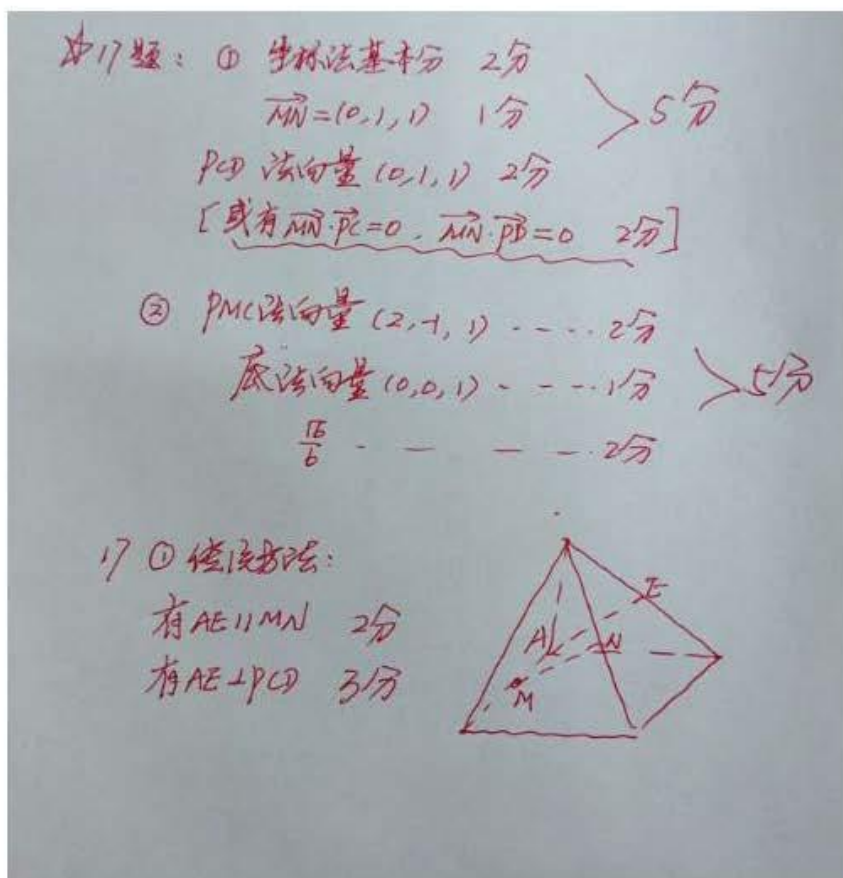 ☆17题：① 坐标法基本分 2分
MN=(0,1,1) 1分 >5分
PCD 法向量(0,1,1) 2分
[或有MN·PC=0，MN·PD=0 2分]
② PMC法向量(2,-1,1)‥‥2分
底法向量(0,0,1)‥‥1分 >5分
√6/6 ‥‥2分
17 ① 传统方法：
有AE∥MN 2分
有AE⊥PCD 3分
E
A
N
M